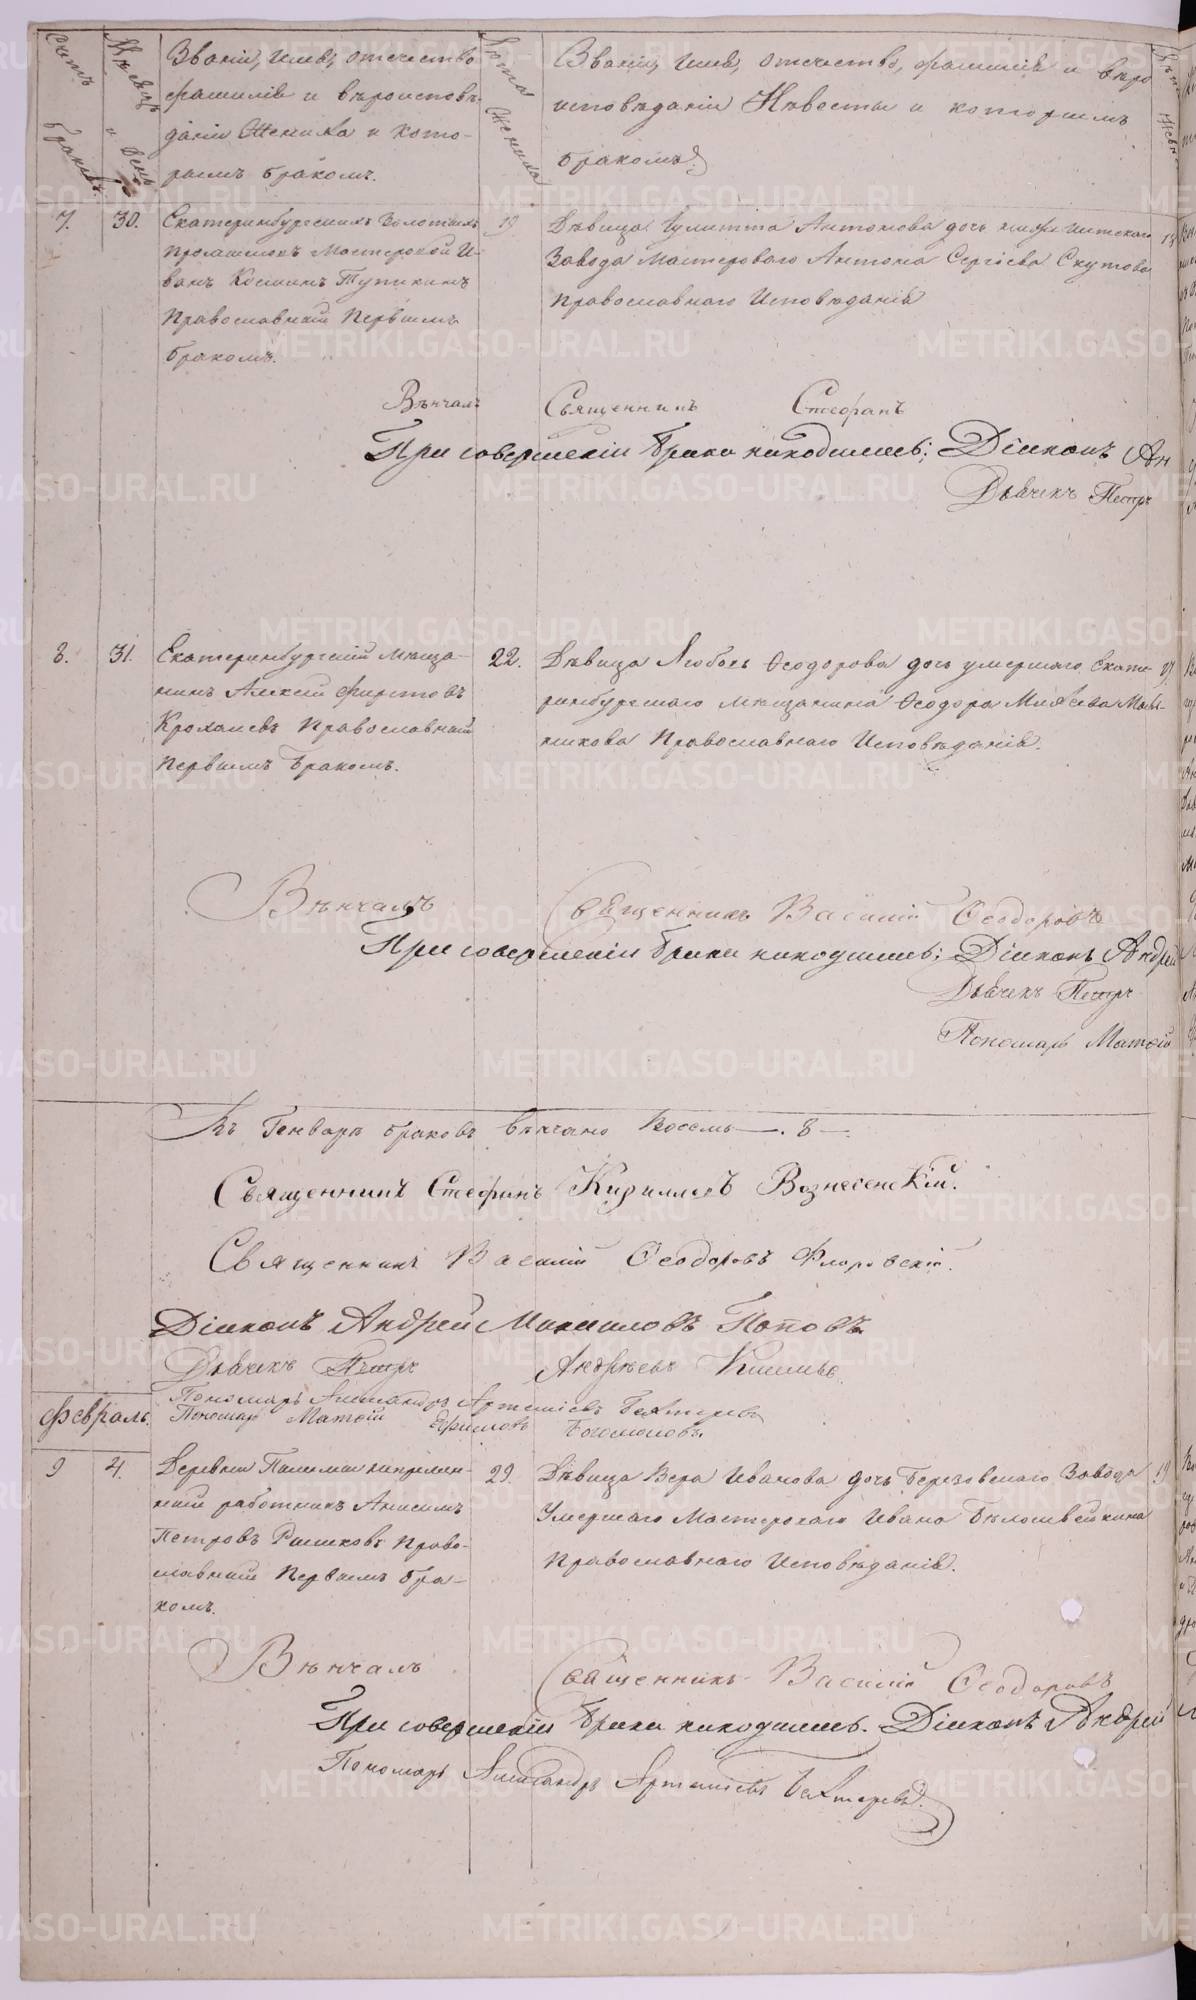 Счетъ браковъ
Мѣсяцъ и день
Званіе, имя, отечество
фамилія и вѣроисповѣ-
даніе Жениха и кото-
рымъ бракомъ.
Лѣта Жениха
Званіе, имя, отечество, фамилія и вѣро
исповѣданіе Невесты и которымъ
бракомъ
7.
30.
Екатеринбургскихъ Золотыхъ
Промысловъ Мастеровой И-
ванъ Косминъ
Православный Первымъ
бракомъ.
19
Дѣвица Іулитта Антонова дочь
Завода Мастероваго Антона Сергѣева Скутова
Православнаго Исповѣданія
Вѣнчалъ Священникъ Стефанъ
При совершеніи брака находились: Діаконъ Ан
Дьячекъ Петръ
8.
31.
Екатеринбургскій мѣща-
нинъ Алексѣй Фирстовъ
Крохалевъ Православный
Первымъ бракомъ.
22.
Дѣвица Любовь Ѳеодорова дочь умершаго Екате-
ринбургскаго мѣщанина Ѳеодора
Православнаго Исповѣданія.
Вѣнчалъ Священникъ Василій Ѳеодоровъ
При совершеніи брака находились: Діаконъ Андрей
Дьячекъ Петръ
Пономарь Матѳій
Въ Генварѣ браковъ вѣнчано Восемь 8
Священникъ Стефанъ Кирилловъ Вознесенскій.
Священникъ Василій Ѳеодоровъ Флоровскій.
Діаконъ Андрей Михаиловъ Поповъ
Дьячекъ Петръ Андрѣевъ
Пономарь Александръ Артеміевъ Бехтеревъ
Февраль.
Пономарь Матѳій Ефимовъ Богомоловъ.
9
4.
Деревни
работникъ Анисимъ
Петровъ Право-
славный Первымъ бра-
комъ.
29.
Дѣвица Вера Иванова дочь Березовскаго Завода
Умершаго Мастероваго Ивана Бѣлошвейкина
Православнаго Исповѣданія.
19
Вѣнчалъ Священникъ Василій Ѳеодоровъ
При совершеніи брака находились. Діаконъ Андрей
Пономарь Александръ Артеміевъ Бехтеревъ.
METRIKI.GASO-URAL.RU